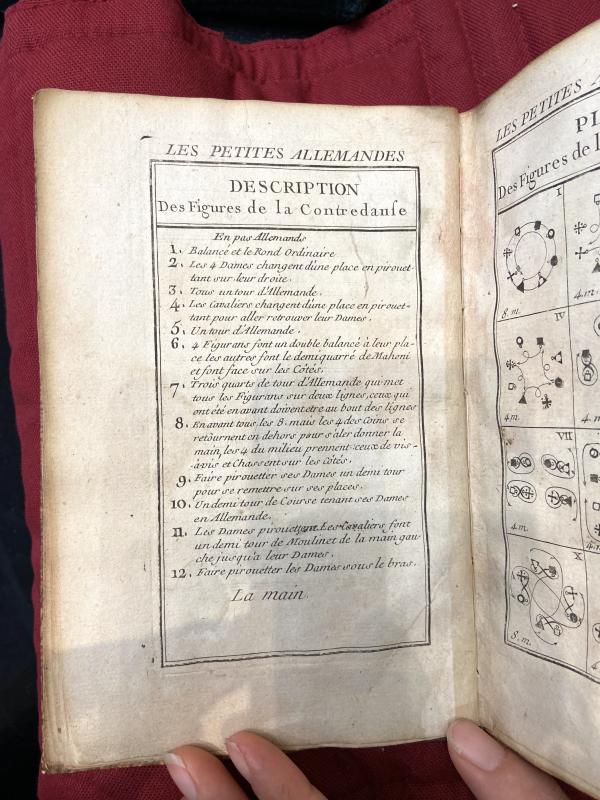 LES PETITES ALLEMANDES
DESCRIPTION
Des Figures de la Contredanſe
En pas Allemands
1. Balancé et le Rond Ordinaire
2. Les 4 Dames changent d'une place en pirouet-
tant sur leur droite.
3. Tous un tour d'Allemande.
4. Les Cavaliers changent d'une place en pirouet-
tant pour aller retrouver leur Dames.
5. Un tour d'Allemande.
6. 4 Figurans font un double balancé à leur pla-
ce les autres font le demi quarré de Mahoni
et font face sur les Côtés.
7. Trois quarts de tour d'Allemande qui met
tous les Figurans sur deux lignes, ceux qui
ont été en avant doivent etre au bout des lignes
8. En avant tous les 8. mais les 4 des Coins se
retournent en dehors pour s'aler donner la
main, les 4 du milieu prennent ceux de vis-
avis et Chassent sur les côtés.
9. Faire pirouetter ses Dames un demi tour
pour se remettre sur ses places.
10. Un demi tour de Course tenant ses Dames
en Allemande.
11. Les Dames pirouettent Les Cavaliers font
un demi tour de Moulinet de la main gau-
che jusqu'a leur Dames.
12. Faire pirouetter les Dames sous le bras.
La main
LES PETITES A
PL
Des Figures de l
I
8. m.
4. m.
IV
4. m.
4. m.
VII
4. m.
4. m.
X
8. m.